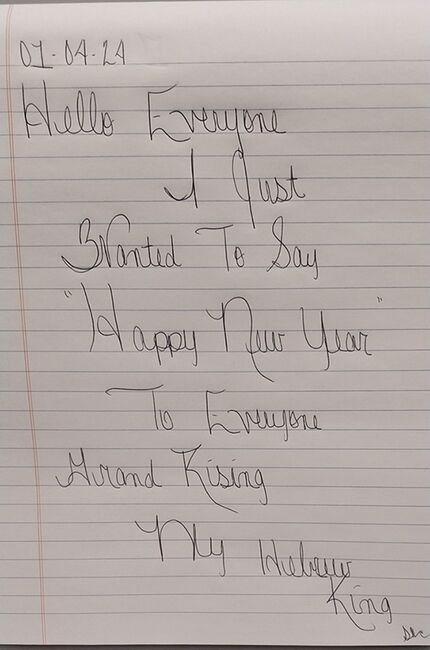 01-04-24
Hello Everyone
I Just
Wanted To Say
"Happy New Year"
To Everyone
Grand Rising
My Hebrew
King